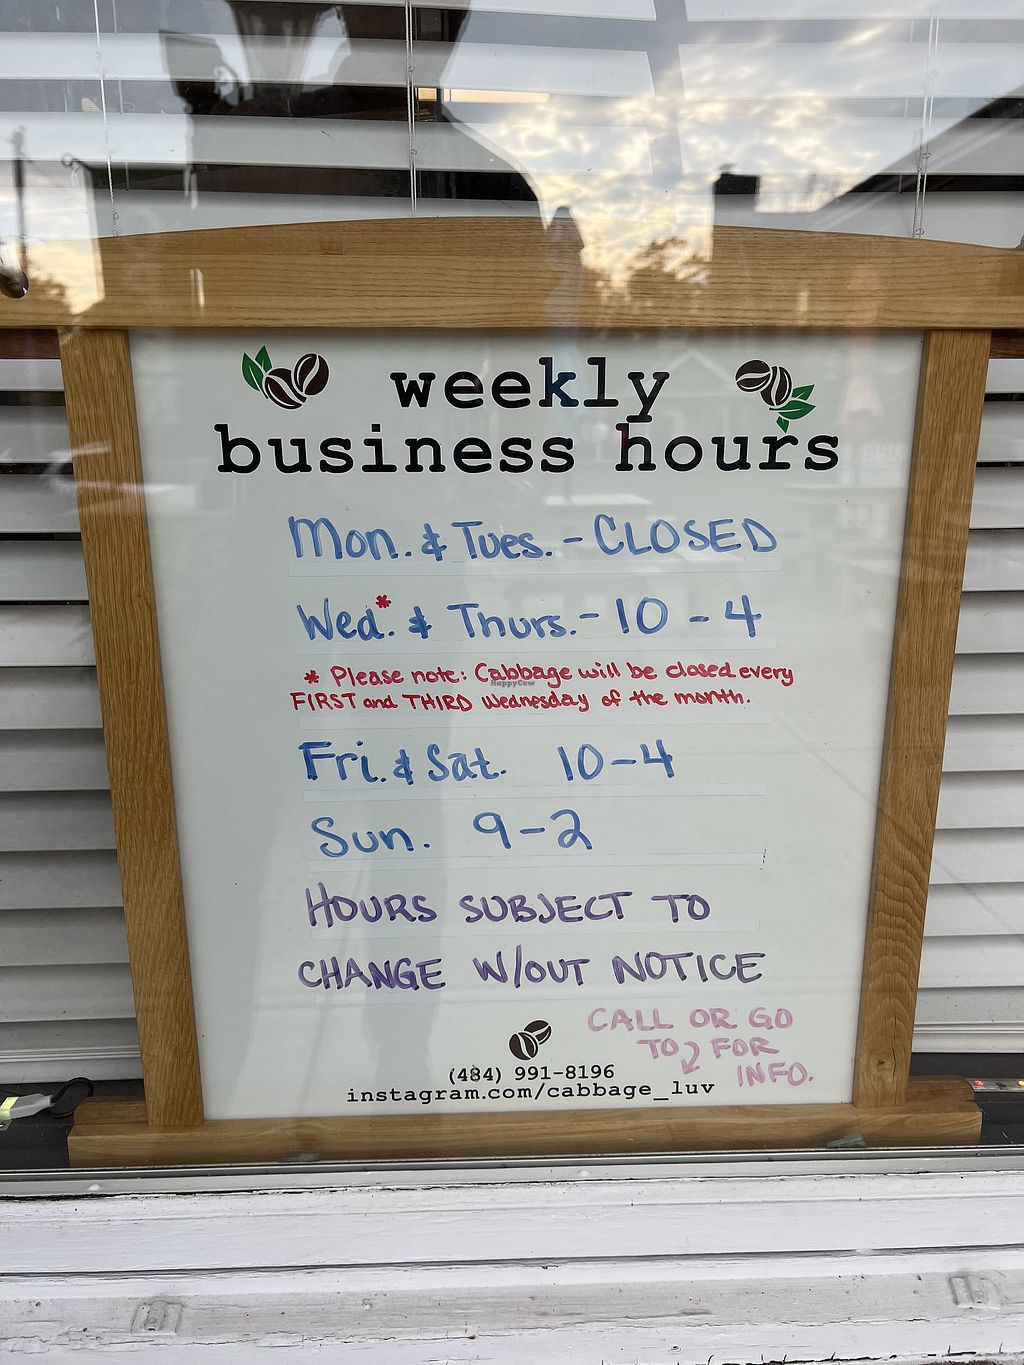 weekly
business hours
Mon. & Tues. - CLOSED
Wed.* & Thurs. - 10 - 4
* Please note: Cabbage will be closed every
HappyCow
FIRST and THIRD Wednesday of the month.
Fri. & Sat. 10-4
Sun. 9-2
HOURS SUBJECT TO
CHANGE W/OUT NOTICE
CALL OR GO
TO FOR
INFO.
(484) 991-8196
instagram.com/cabbage_luv